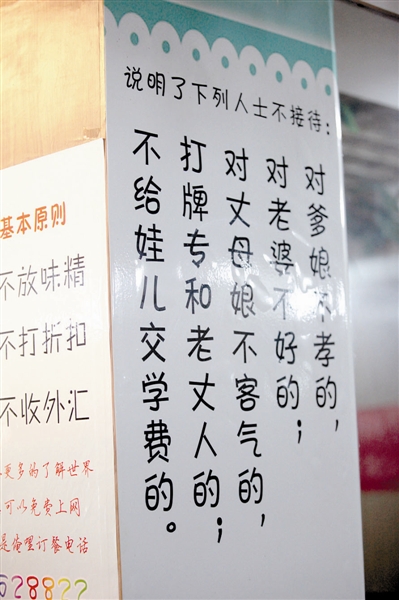 说明了下列人士不接待：
对爹娘不孝的，
对老婆不好的；
对丈母娘不客气的，
打牌专和老丈人的；
不给娃儿交学费的。
基本原则
不放味精
不打折扣
不收外汇
更多的了解世界
可以免费上网
是俺嘿订餐电话